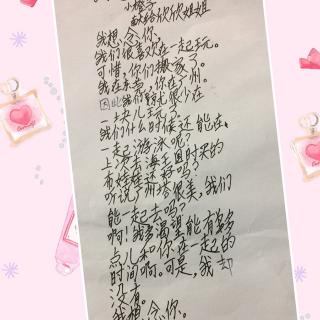 小橙子
献给欣欣姐姐
我想念你,
我们很喜欢在一起玩。
可惜,你们搬家了。
我在东莞,你在广州。
因此我们就很少在
一块儿玩了。
我们什么时候还能在
一起游泳呢?
上次去海王国时买的
布娃娃还好吗?
听说广州塔很美,我们
能一起去吗?
啊!我多渴望能有多
点儿和你在一起的
时间啊。可是,我却
没有。
我想念你。